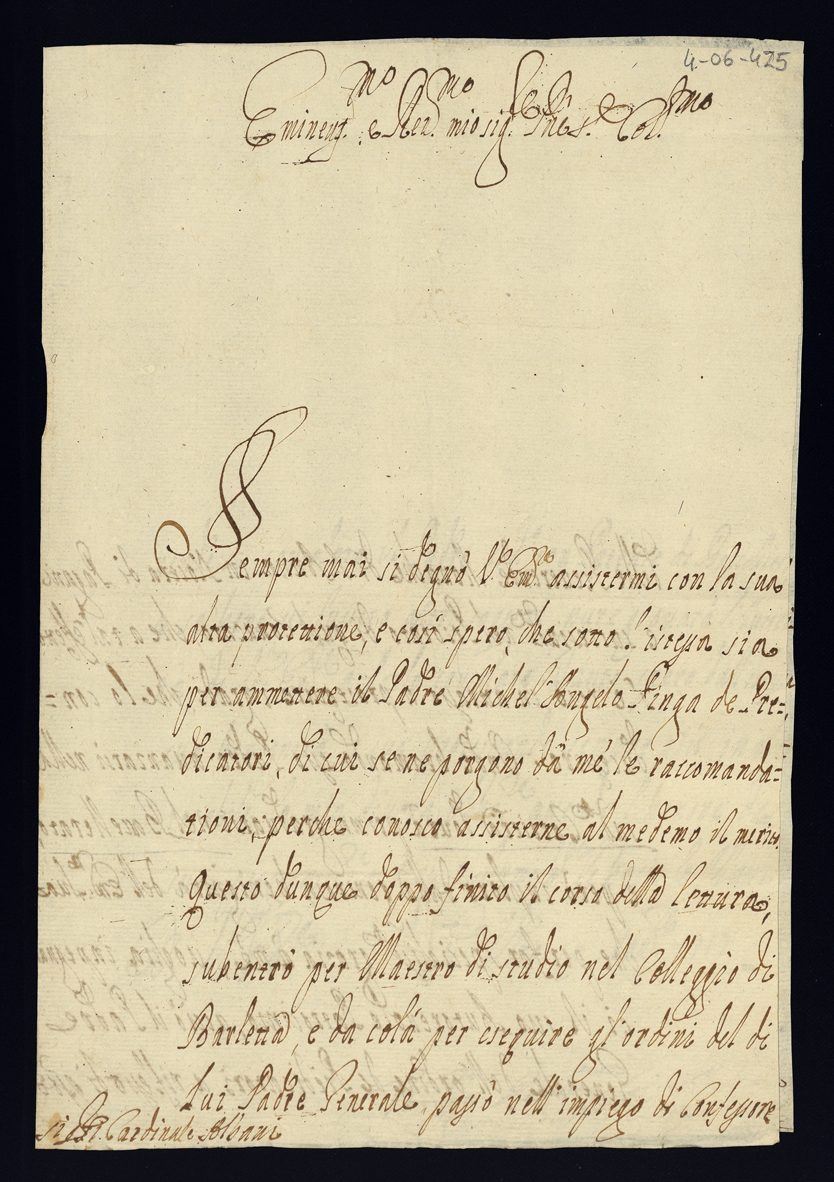 4-06-425
Eminent.mo e Rev.mo mio sig.re Pñe s. Col.mo
Sempre mai si degnò V.ª Em.za assistermi con la sua
alta protettione, e così spero, che sotto l'istessa sia
per ammettere il Padre Michel'Angelo Finga de Pre=
dicatori, di cui se ne porgono dà mé le raccomanda=
tioni, perche conosco assisterne al medemo il merito.
Questo dunque doppo finito il corso della lettura,
subentrò per Maestro di studio nel Colleggio di
Barletta, e da colà per eseguire gl'ordini del di
lui Padre Generale, passò nell'impiego di Confessore
Cardinale Albani